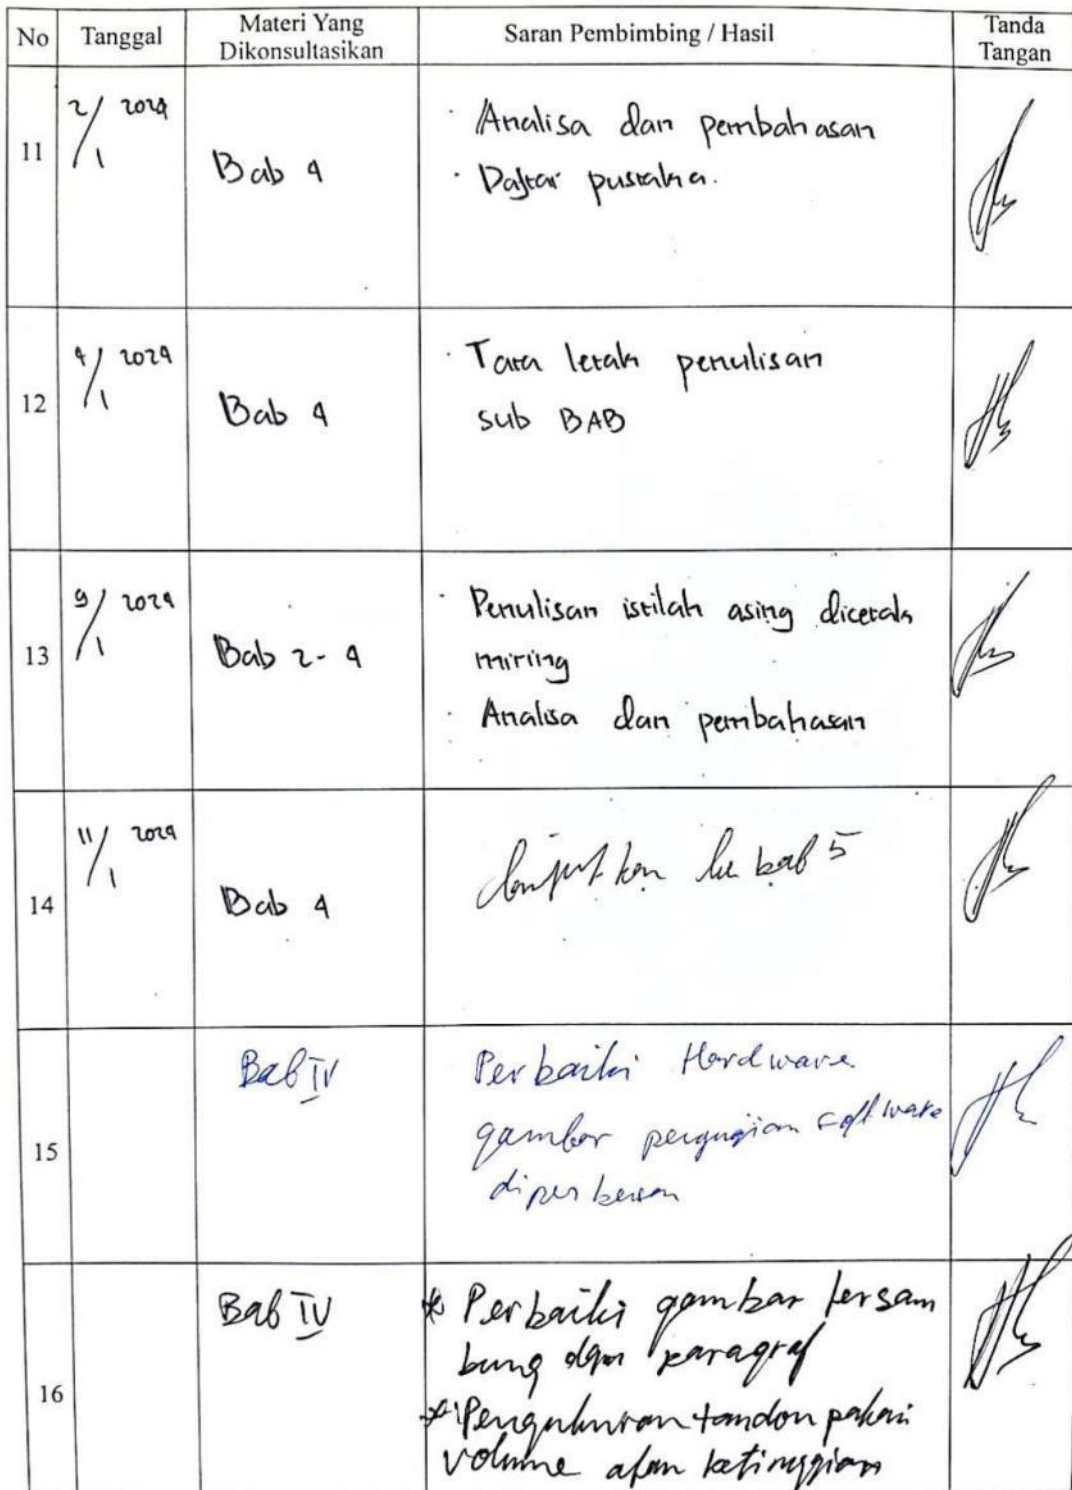 No Tanggal Materi Yang Dikonsultasikan Saran Pembimbing / Hasil Tanda Tangan
11 2/1 2024 Bab 4
· Analisa dan pembahasan
· Daftar pustaka.
12 4/1 2024 Bab 4
· Tata letak penulisan
sub BAB
13 9/1 2024 Bab 2-4
· Penulisan istilah asing dicetak
miring
· Analisa dan pembahasan
14 11/1 2024 Bab 4
lanjutkan ke bab 5
15 Bab IV
Perbaiki Hardware
gambar pengujian software
diperbesar
16 Bab IV
* Perbaiki gambar tersam
bung dgn paragraf
* Pengukuran tandon pakai
volume atau ketinggian